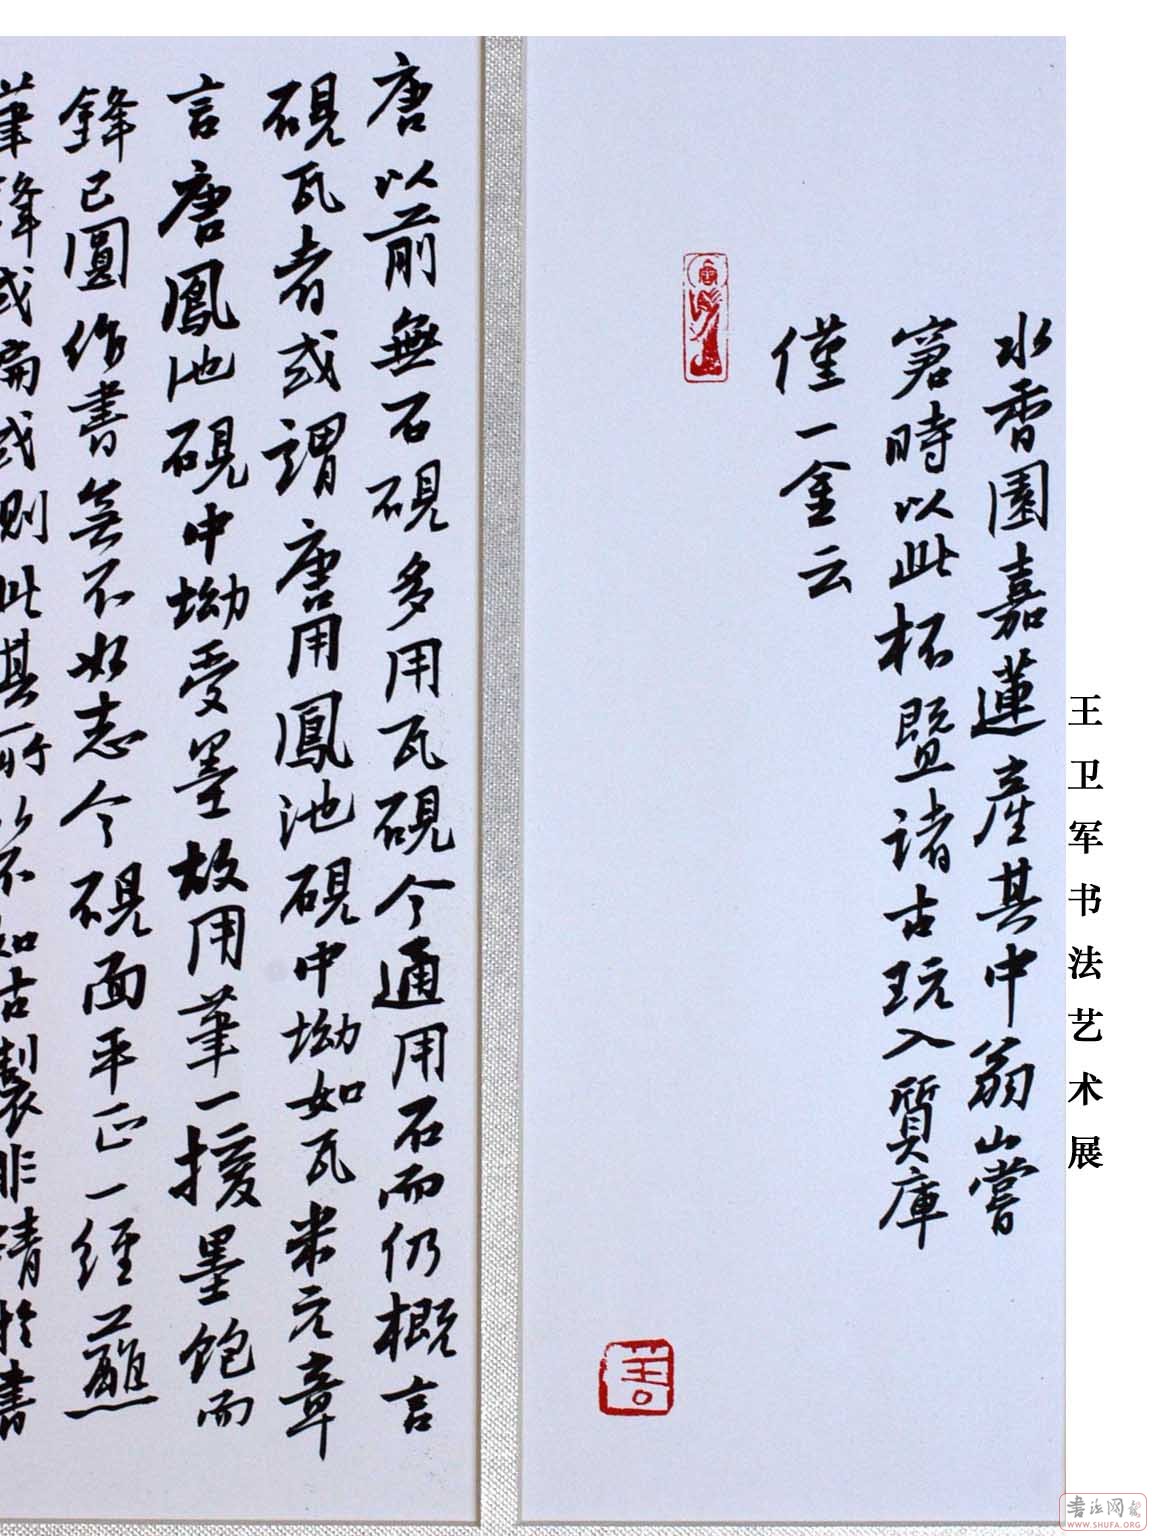 水香園嘉蓮產其中翁山嘗
窘時以此杯暨諸古玩入質庫
僅一金云
唐以前無石硯多用瓦硯今通用石而仍概言
硯瓦者或謂唐用鳳池硯中坳如瓦米元章
言唐鳳池硯中坳受墨故用筆一援墨飽而
鋒已圓作書無不如志今硯面平正一經蘸
筆鋒或扁或則此其所以不如古製非清於書
王卫军书法艺术展
书法网
WWW.SHUFA.ORG